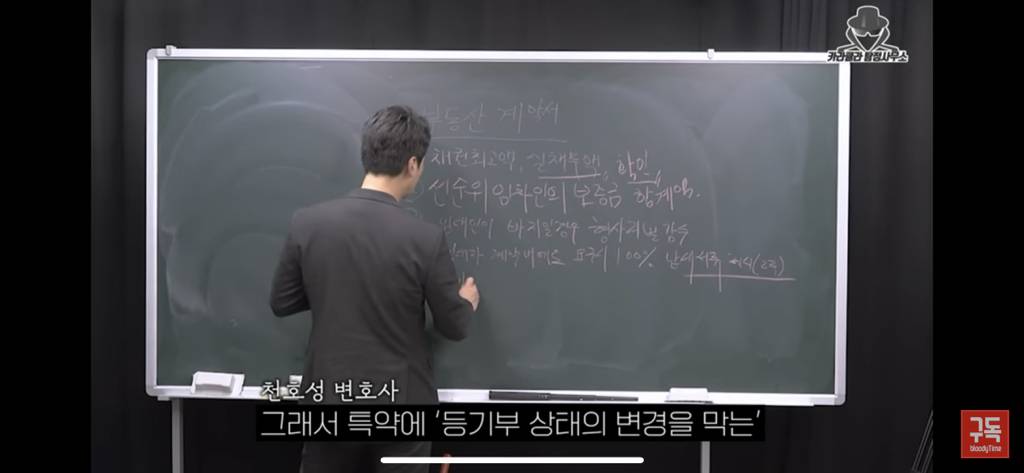 카라큘라 탐정사무소
부동산 계약서
채권최고액, 실채무액, 확인,
선순위 임차인의 보증금 합계액.
임대인이 바지일경우 형사처벌 감수
100%
천호성 변호사
그래서 특약에 '등기부 상태의 변경을 막는'
구독
bloodyTime